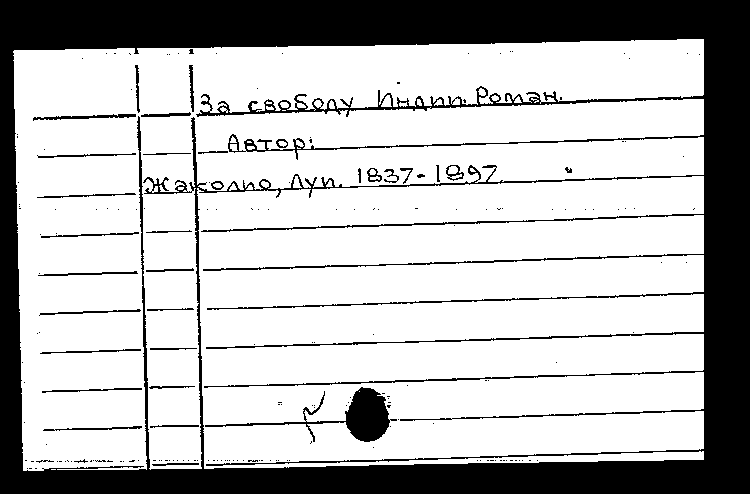 За свободу Индии. Роман.
Автор:
Жаколио, Луи. 1837-1897